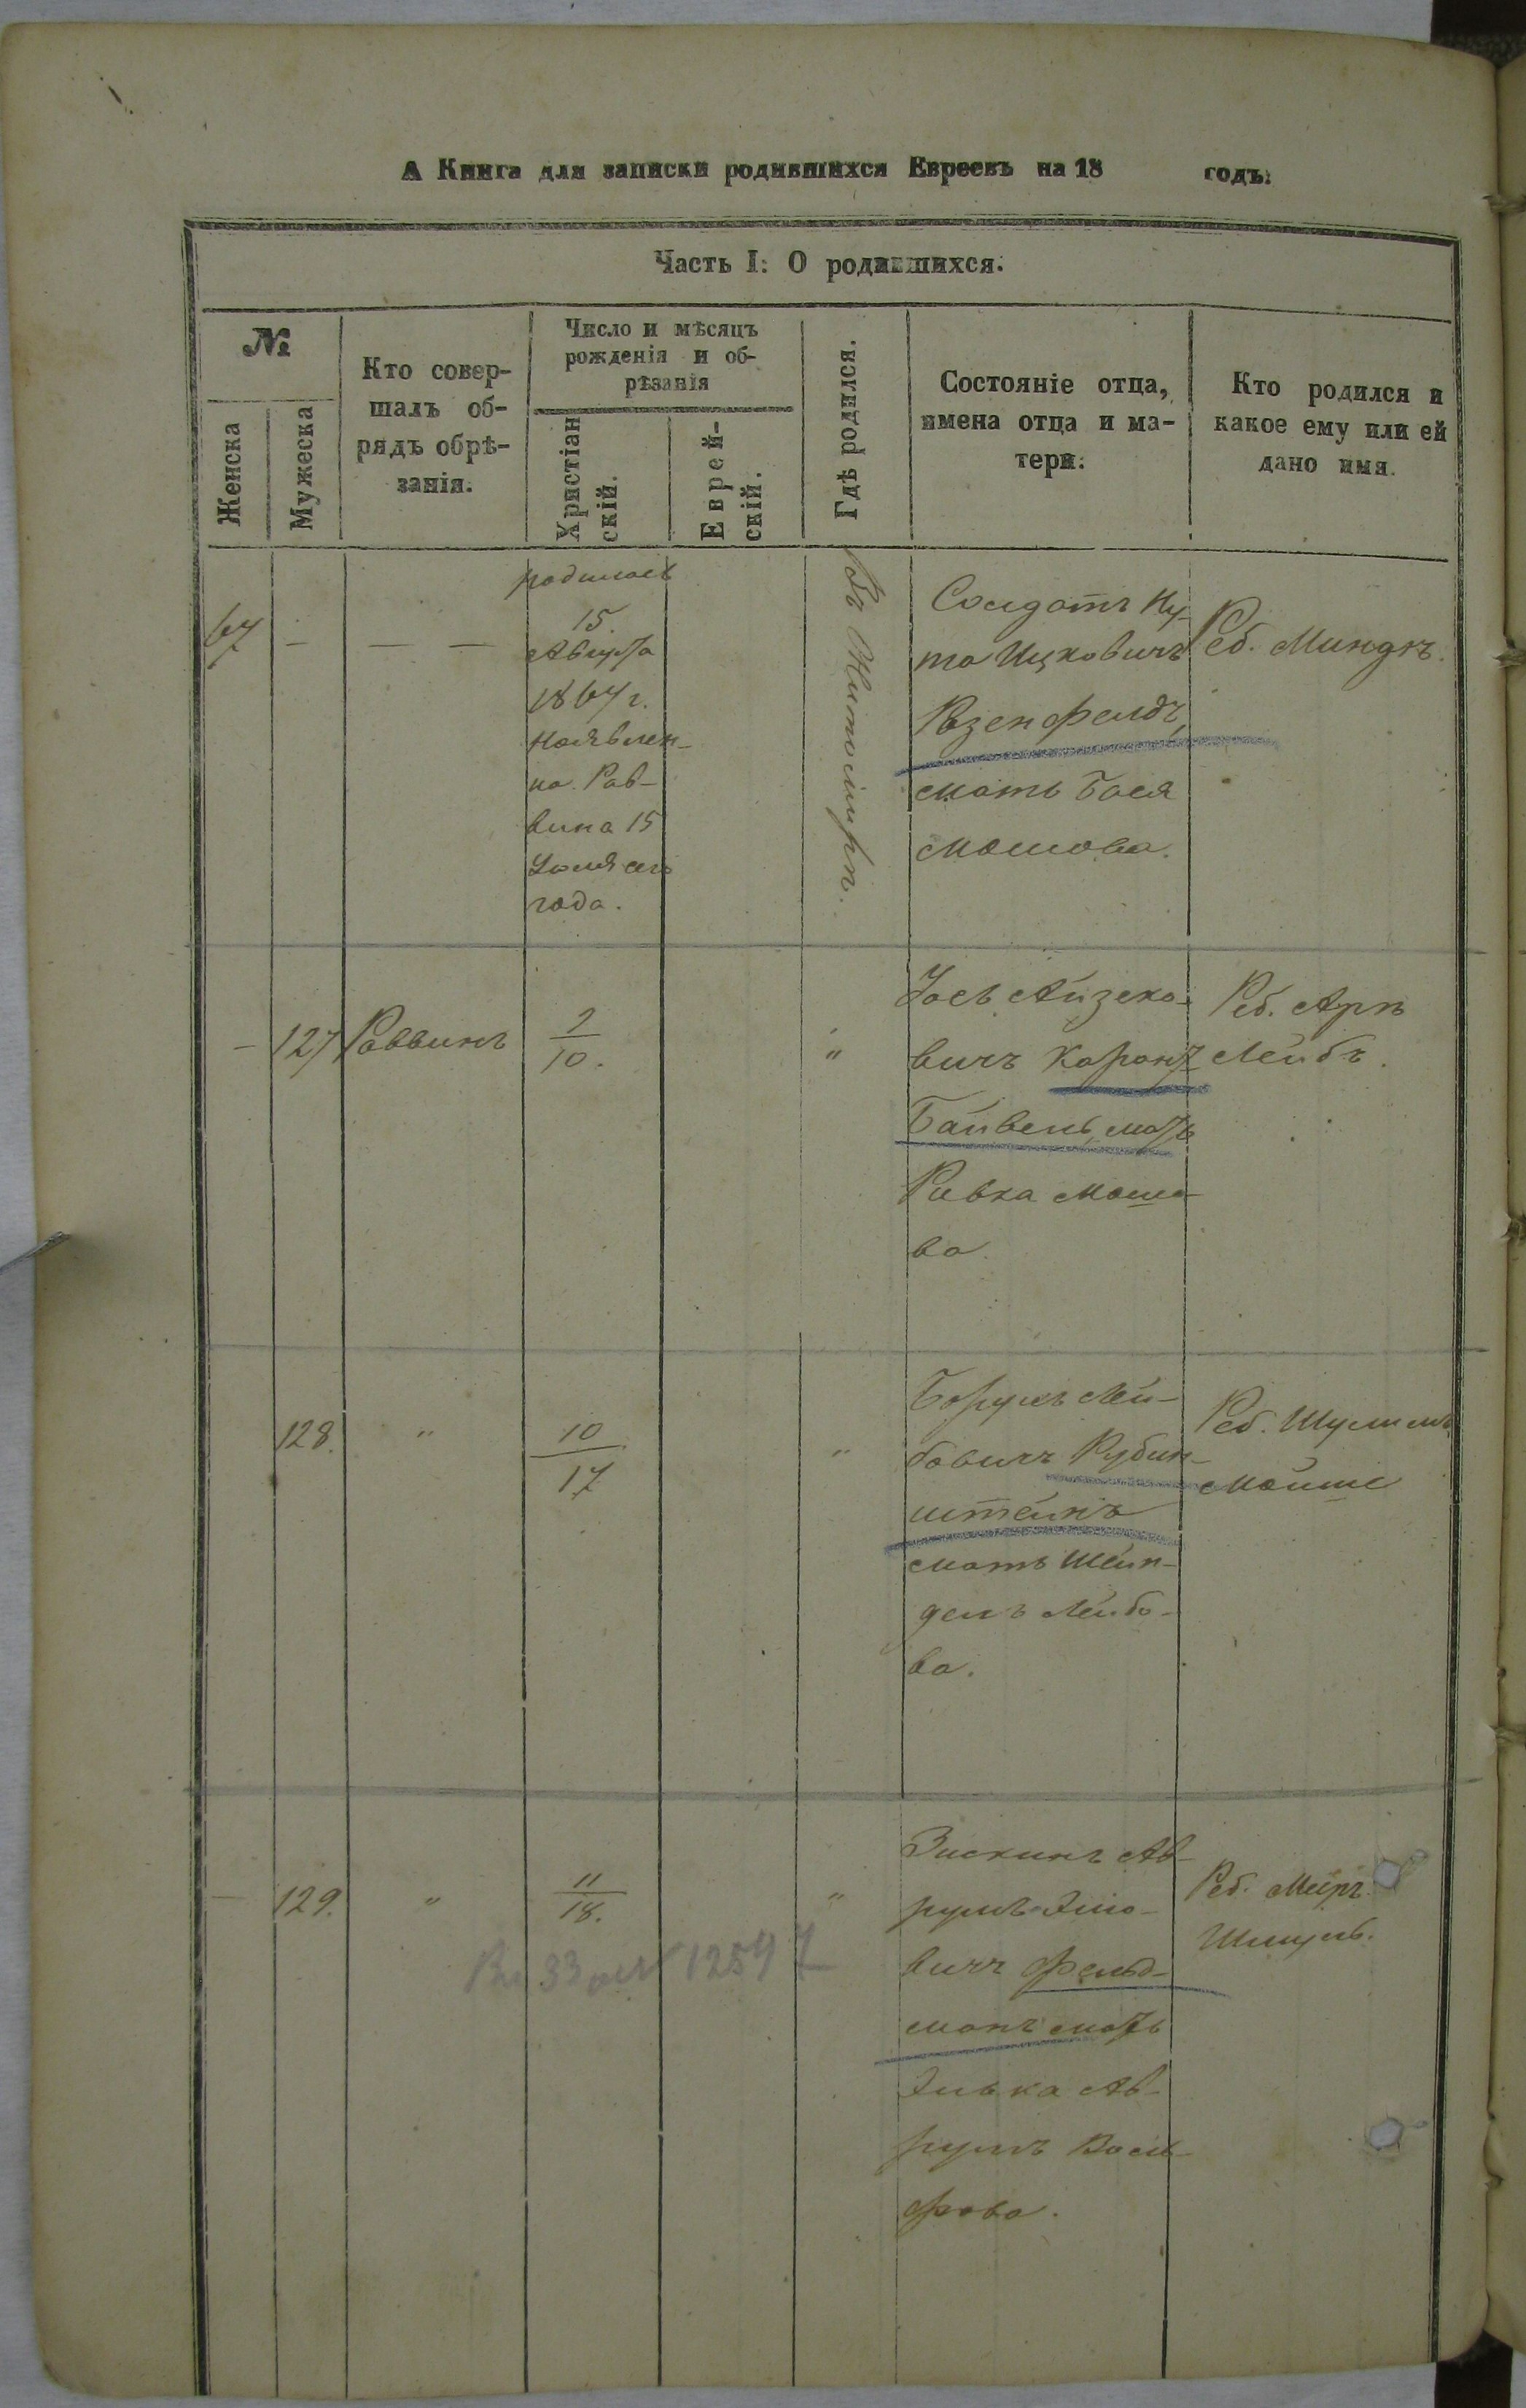 А Книга для записки родившихся Евреевъ на 18 годъ:
Часть I: О родившихся.
№
Женска
Мужеска
Кто совер-
шалъ об-
рядъ обрѣ-
занія.
Число и мѣсяцъ
рожденія и об-
рѣзанія
Христіан
скій.
Еврей-
скій.
Гдѣ родился.
Состояніе отца,
имена отца и ма-
тери:
Кто родился и
какое ему или ей
дано имя.
67
—
— —
родилась
15
Августа
1867 г.
на Рав-
вина 15
года.
въ Житомирѣ.
Солдатъ Ну-
та Ицковичъ
Розенфелдъ,
мать Бася
Мошова.
Реб. Миндль.
— 127
Раввинъ
2
10.
"
Іось Айзеко-
вичъ
Байвель, мать
Ривка Мошо-
ва.
Реб. Арн
Лейбъ.
128.
"
10
17
"
Борухъ Лей-
бовичъ Рубин-
штейнъ
мать Шейн-
дель Лейбо-
ва.
Реб. Шулимъ
Мойше
— 129.
"
11
18.
"
Зискинъ Ав-
румъ
вичъ Фельд-
манъ мать
Элька Ав-
румъ
Реб. Меиръ
Шмуль.
33 12597